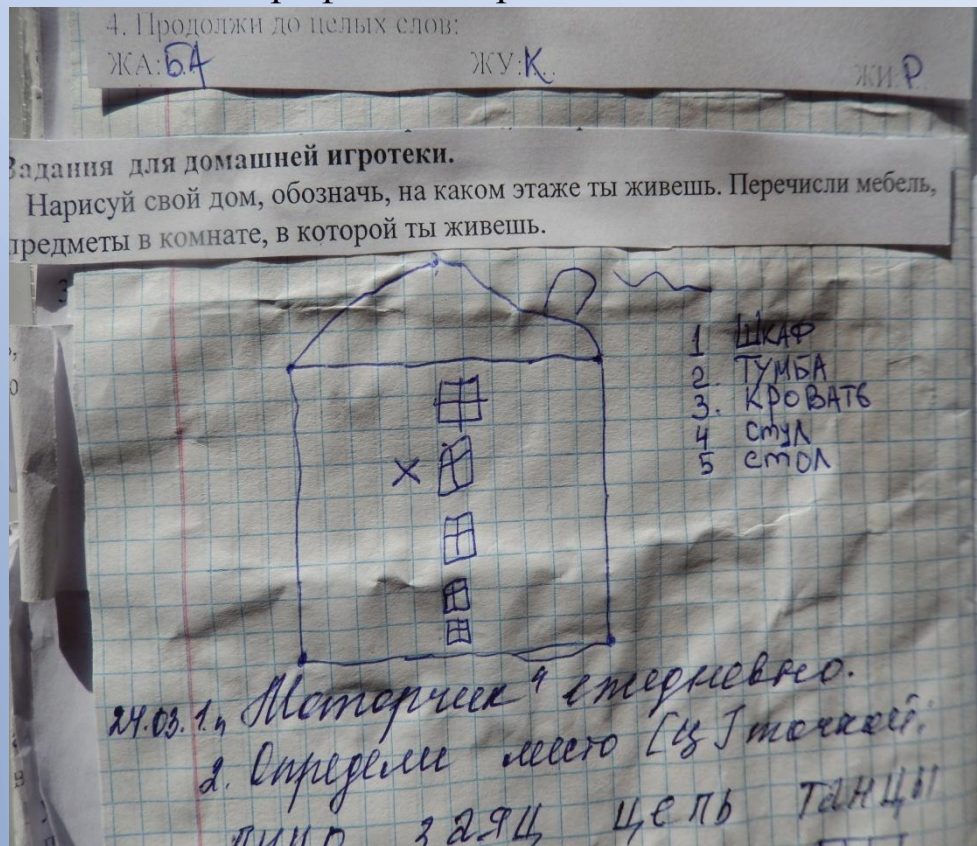 4. Продолжи до целых слов:
ЖА:БА ЖУ:К ЖИ:Р
Задания для домашней игротеки.
Нарисуй свой дом, обозначь, на каком этаже ты живешь. Перечисли мебель,
предметы в комнате, в которой ты живешь.
1 ШКАФ
2. ТУМБА
3. КРОВАТЬ
4 СТУЛ
5 СТОЛ
24.03.1. „Моторчик" ежедневно.
2. Определи место [ц] точкой:
ЗАЯЦ ЦЕПЬ ТАНЦЫ